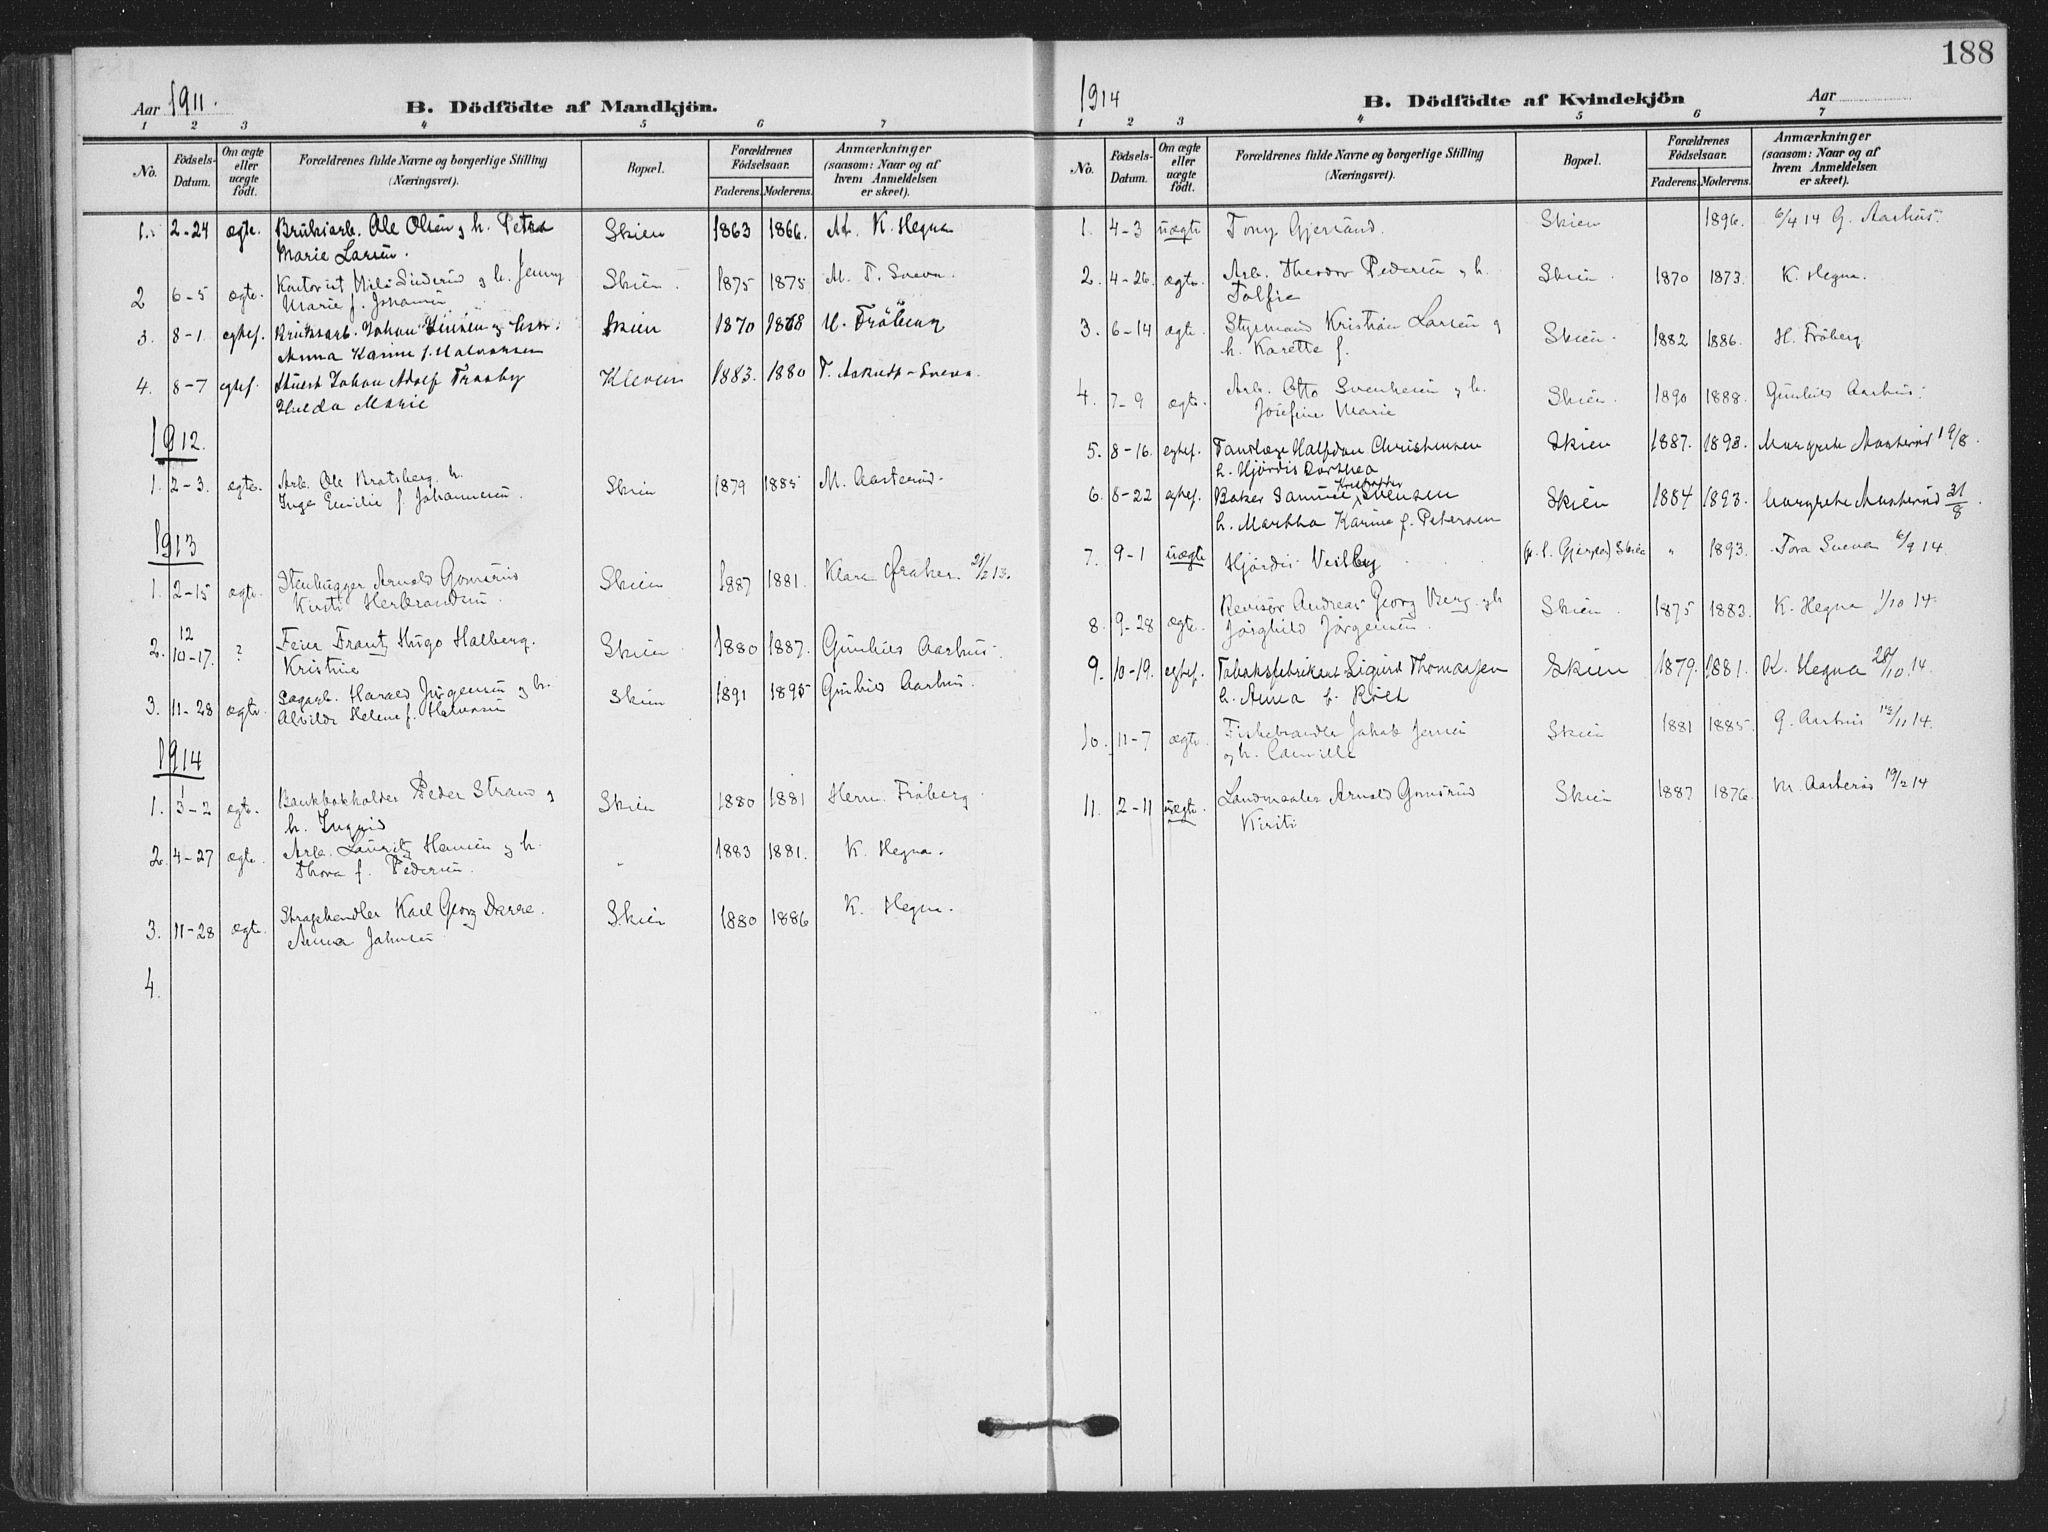 188
Aar 1911.
B. Dödfödte af Mandkjön.
1 2 3 4 5 6 7
No. Födsels-Datum. Om ægte eller uægte födt. Forældrenes fulde Navne og borgerlige Stilling (Næringsvei). Bopæl. Forældrenes Födselsaar. Faderens. Moderens. Anmærkninger (saasom: Naar og af hvem Anmeldelsen er skeet).
1. 2-24 ægte. Ole Olsen og h. Petra Skien 1863 1866. K. Hegna
Marie Larsen.
2 6-5 ægte. Kontorist og h. Jenny Skien 1875 1875 M. T. Sveva.
Marie f.
3. 8-1 egtef. Johan Jensen og Skien 1870 1868 H. Fröberg
Anna f. Halvorsen
4. 8-7 egtef. Johan Adolf Traaby Kleven 1883. 1880 T. Sveva.
Hulda Marie
1912.
1. 2-3. ægte. Arb. Ole Bratsberg. h. Skien 1879 1885 M. Aasterud.
Inga Emilie f. Johannesen.
1913
1. 2-15 ægte. Stenhugger Arnold Gomsrud Skien 1887 1881. Klara 21/2 13.
Kirsti Herbrandsen.
12
2. 10-17. ? Feier Frantz Hugo Halberg. Skien 1880 1887. Gunhild Aarhus.
Kristine
3. 11-28 ægte. Harald Jørgensen og h. Skien 1891 1895 Gunhild Aarhus.
Alvilde Helene f. Halvorsen
1914
1. 3-2 ægte. Bankbokholder Peder Strand og Skien 1880 1881 Herm. Fröberg.
h. Ingrid
2. 4-27 ægte. Arb. Lauritz Hansen og h. " 1883 1881. K. Hegna.
Thora f. Pedersen.
3. 11-28 ægte. Karl Georg Darre. Skien 1880 1886 K. Hegna.
Anna Johnsen
4.
1914
B. Dödfödte af Kvindekjön
Aar
1 2 3 4 5 6 7
No. Födsels-Datum. Om ægte eller uægte födt. Forældrenes fulde Navne og borgerlige Stilling (Næringsvei). Bopæl. Forældrenes Födselsaar. Faderens. Moderens. Anmærkninger (saasom: Naar og af hvem Anmeldelsen er skeet).
1. 4-3 uægte Tony Skien 1896. 6/4 14 G. Aarhus.
2. 4-26. ægte. Arb. Theodor Pedersen og h. Skien. 1870 1873. K. Hegna.
3. 6-14 ægte. Styrmand Kristian Larsen og Skien. 1882 1886. H. Fröberg
h. Karette f.
4. 7-9 ægte. Arb. Otto Svendsen og h. Skien. 1890 1888. Gunhild Aarhus.
Josefine Marie
5. 8-16. egtef. Tandlæge Halfdan Christensen Skien 1887. 1893. Margrete Aasterud 19/8.
h. Hjördis Dorthea
6. 8-22 egtef. Baker Samuel Kristoffer Svensen Skien 1884 1893. Margrete Aasterud 31/8.
h. Martha Karine f. Petersen
7. 9-1 uægte Hjördis (p. t. Gjerpen) Skien " 1893. Tora Sveva 6/9 14.
8. 9-28 ægte. Revisor Andreas Georg Berg. og h Skien. 1875 1883. K. Hegna 1/10 14.
Jørgensen.
9. 10-19. egtef. Tobaksfabrikant Sigurd Thomassen Skien 1879. 1881. K. Hegna 28/10 14.
h. Anna f. Röed
10. 11-7 ægte. Jakob Jensen Skien 1881 1885. G. Aarhus 14.
og h. Camilla
11. 2-11 uægte. Arnold Gomsrud Skien 1887 1876. M. Aasterud 19/2 14
Kirsti